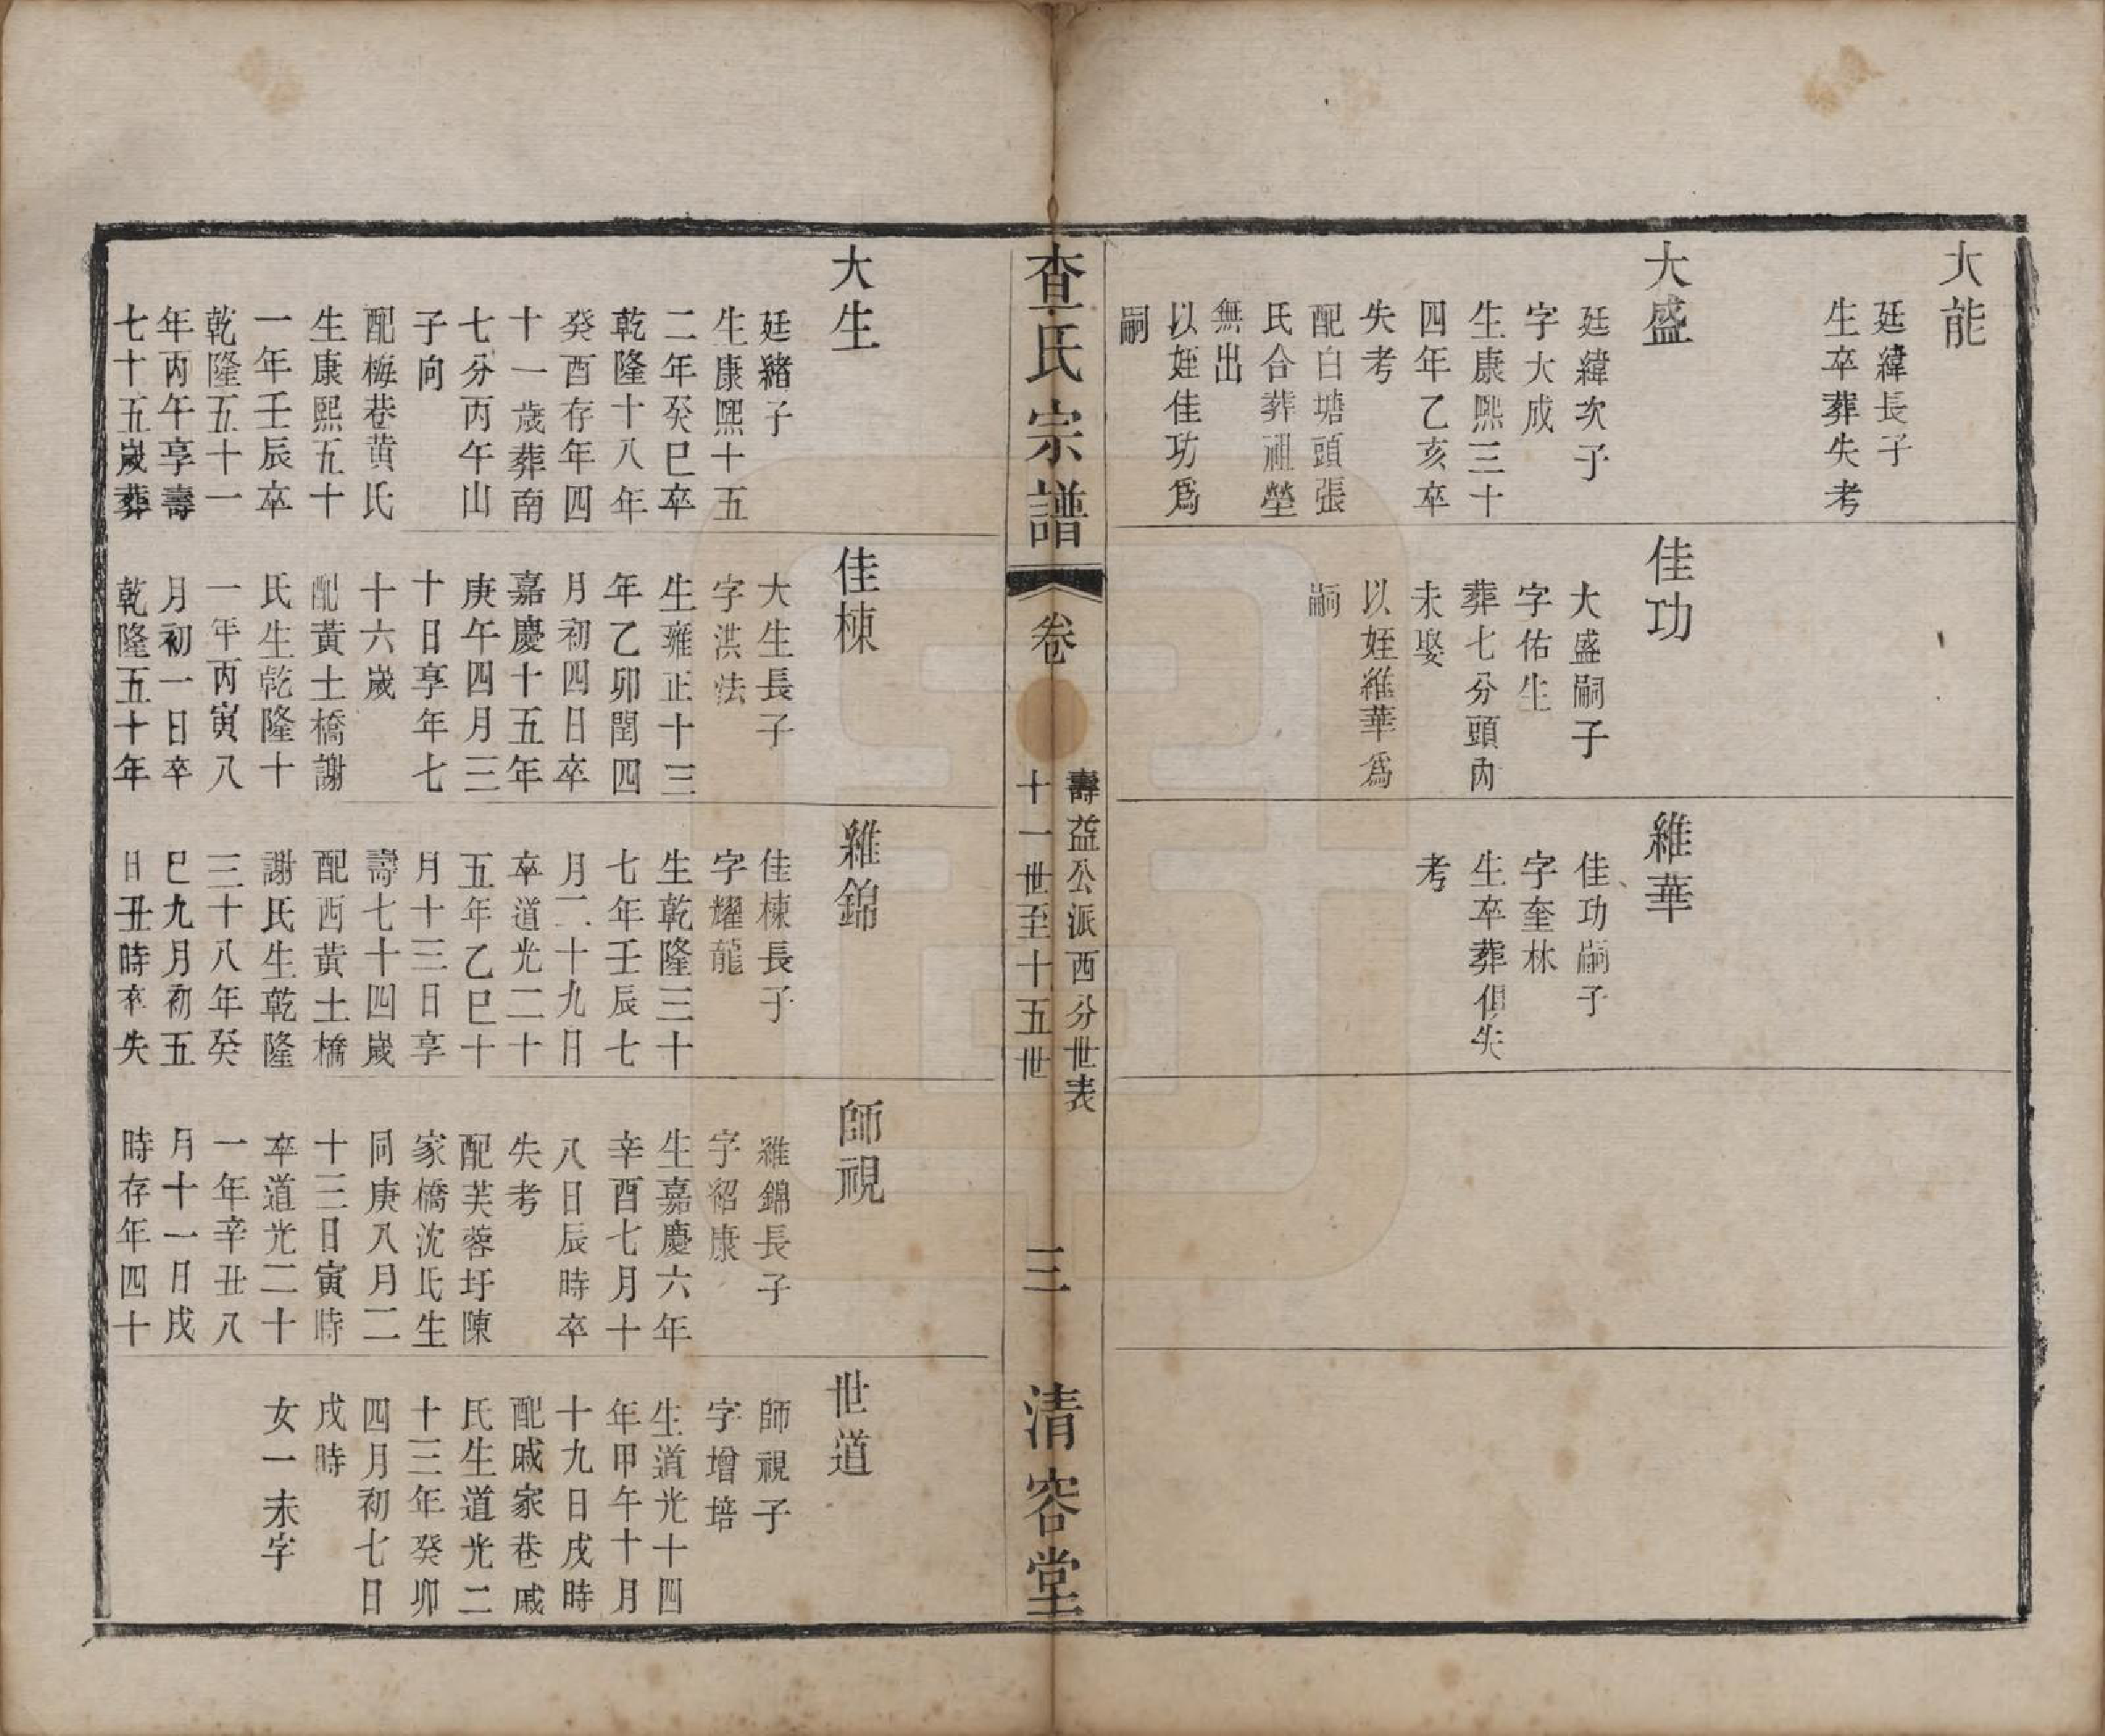 大能
廷緯長子
生卒葬失考
大盛
廷緯次子
字大成
生康熙三十
四年乙亥卒
失考
配白塘頭張
氏合葬祖塋
無出
以姪佳功爲
嗣
佳功
大盛嗣子
字佑生
葬七分頭內
未娶
以姪維華爲
嗣
維華
佳功嗣子
字奎林
生卒葬俱失
考
查氏宗譜
卷
壽益公派西分世表
十一世至十五世
三
清容堂
大生
廷緒子
生康熙十五
二年癸巳卒
乾隆十八年
癸酉存年四
十一歲葬南
七分丙午山
子向
配梅巷黃氏
生康熙五十
一年壬辰卒
乾隆五十一
年丙午享壽
七十五歲葬
佳棟
大生長子
字洪法
生雍正十三
年乙卯閏四
月初四日卒
嘉慶十五年
庚午四月三
十日享年七
十六歲
配黃土橋謝
氏生乾隆十
一年丙寅八
月初一日卒
乾隆五十年
維錦
佳棟長子
字耀龍
生乾隆三十
七年壬辰七
月二十九日
卒道光二十
五年乙巳十
月十三日享
壽七十四歲
配西黃土橋
謝氏生乾隆
三十八年癸
巳九月初五
日丑時卒失
師視
維錦長子
字紹康
生嘉慶六年
辛酉七月十
八日辰時卒
失考
配芙蓉圩陳
家橋沈氏生
同庚八月二
十三日寅時
卒道光二十
一年辛丑八
月十一日戌
時存年四十
世道
師視子
字增培
生道光十四
年甲午十月
十九日戌時
配戚家巷戚
氏生道光二
十三年癸卯
四月初七日
戌時
女一未字